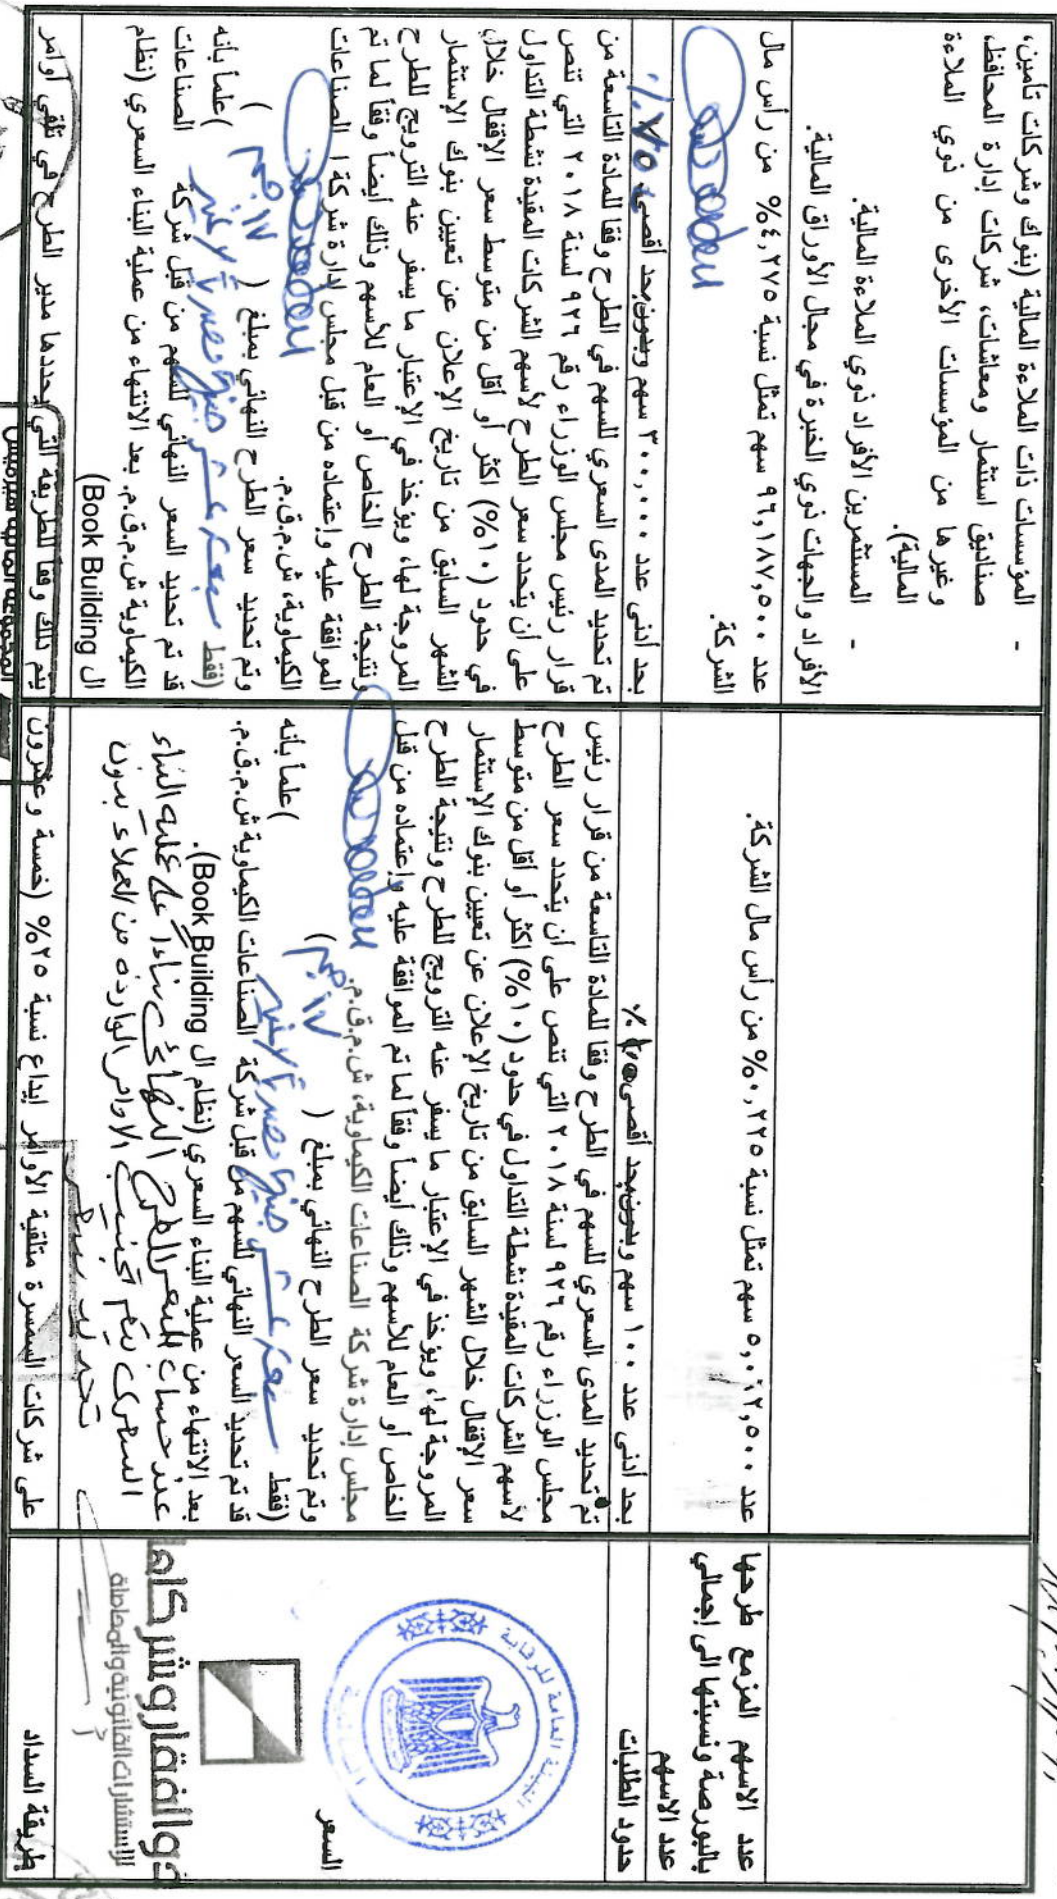 المؤسسات ذات الملاءة المالية (بنوك وشركات تأمين،
صناديق استثمار ومعاشات، شركات إدارة المحافظ،
وغيرها من المؤسسات الأخرى من ذوي الملاءة
المالية).
- المستثمرين الأفراد ذوي الملاءة المالية.
الأفراد والجهات ذوي الخبرة في مجال الأوراق المالية.
عدد الاسهم المزمع طرحها
بالبورصة ونسبتها الى إجمالي
عدد الاسهم
عدد ٥,٠١٢,٥٠٠ سهم تمثل نسبة ٠,٢٢٥% من رأس مال الشركة.
عدد ٩٦,١٨٧,٥٠٠ سهم تمثل نسبة ٤,٢٧٥% من رأس مال
الشركة.
حدود الطلبات
بحد أدنى عدد ١٠٠ سهم وبدون حد أقصى
بحد أدنى عدد ٣٠٠,٠٠٠ سهم وبدون حد أقصى
السعر
تم تحديد المدى السعري للسهم في الطرح وفقا للمادة التاسعة من قرار رئيس
مجلس الوزراء رقم ٩٢٦ لسنة ٢٠١٨ التي تنص على أن يتحدد سعر الطرح
لأسهم الشركات المقيدة نشطة التداول في حدود (١٠%) اكثر أو أقل من متوسط
سعر الإقفال خلال الشهر السابق من تاريخ الإعلان عن تعيين بنوك الإستثمار
المروجة لها، ويؤخذ في الإعتبار ما يسفر عنه الترويج للطرح ونتيجة الطرح
الخاص أو العام للأسهم وذلك أيضاً وفقاً لما تم الموافقة عليه وإعتماده من قبل
مجلس إدارة شركة الصناعات الكيماوية، ش.م.ق.م.
وتم تحديد سعر الطرح النهائي بمبلغ ( ١٧ جم )
(فقط سبعة عشر جنيهاً مصرياً لا غير )علماً بأنه
قد تم تحديد السعر النهائي للسهم من قبل شركة الصناعات الكيماوية ش.م.ق.م.
بعد الانتهاء من عملية البناء السعري (نظام ال Book Building).
عند حساب السعر الطرح النهائي بناءاً على عملية البناء
السعري يتم تجنيب الاوامر الوارده من العملاء بدون
تحديد سعر
تم تحديد المدى السعري للسهم في الطرح وفقا للمادة التاسعة من
قرار رئيس مجلس الوزراء رقم ٩٢٦ لسنة ٢٠١٨ التي تنص
على أن يتحدد سعر الطرح لأسهم الشركات المقيدة نشطة التداول
في حدود (١٠%) اكثر أو أقل من متوسط سعر الإقفال خلال
الشهر السابق من تاريخ الإعلان عن تعيين بنوك الإستثمار
المروجة لها، ويؤخذ في الإعتبار ما يسفر عنه الترويج للطرح
ونتيجة الطرح الخاص أو العام للأسهم وذلك أيضاً وفقاً لما تم
الموافقة عليه وإعتماده من قبل مجلس إدارة شركة الصناعات
الكيماوية، ش.م.ق.م.
وتم تحديد سعر الطرح النهائي بمبلغ ( ١٧ جم )
(فقط سبعة عشر جنيهاً مصرياً لا غير )علماً بأنه
قد تم تحديد السعر النهائي للسهم من قبل شركة الصناعات
الكيماوية ش.م.ق.م. بعد الانتهاء من عملية البناء السعري (نظام
ال Book Building)
الهيئة العامة للرقابة المالية
ذوالفقار وشركاها
للاستشارات القانونية والمحاماة
طريقة السداد
على شركات السمسرة متلقية الأوامر إيداع نسبة ٢٥% (خمسة وعشرون
يتم ذلك وفقاً للطريقة التي يحددها مدير الطرح في تلقي أوامر
المجموعة المالية هيرميس